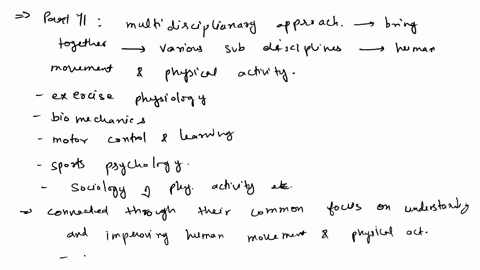 ⇒ Part II : multidisciplianary approach. → bring
together → various sub disciplines → human
movement & physical activity.
- exercise physiology
- biomechanics
- motor control & learning
- sports psychology.
- Sociology of phy. activity etc.
→ connected through their common focus on understandg
and improving human movement & physical act.
-